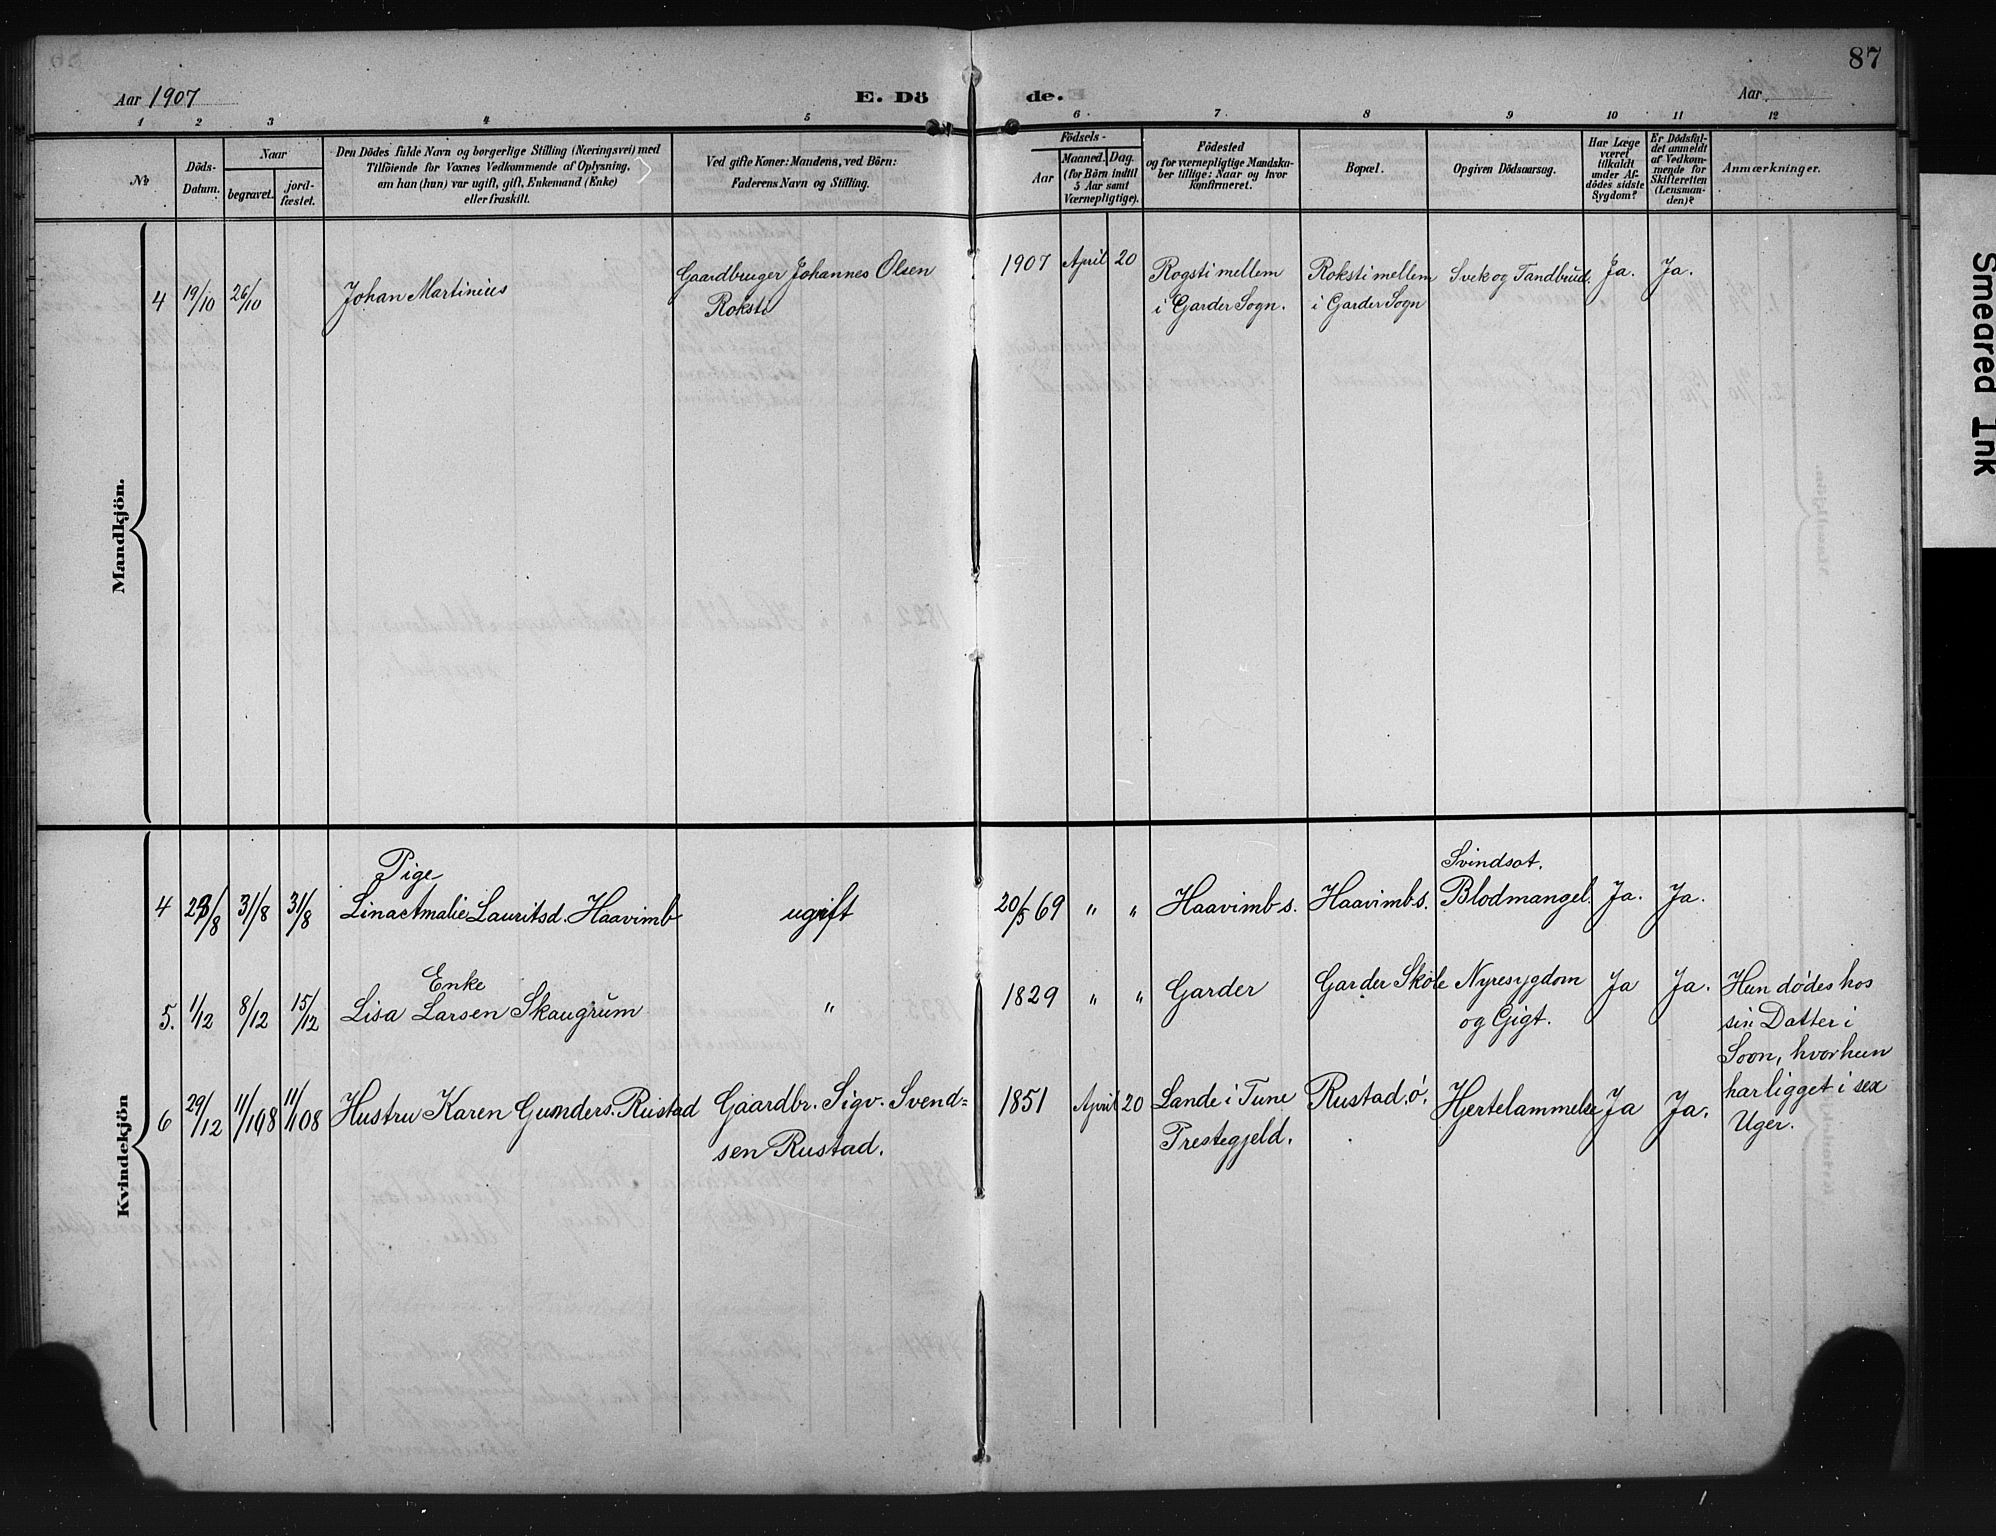 87
Aar 1907
E. Dö de.
Aar
1 2 3 4 5 6 7 8 9 10 11 12
Nr
Döds-
Datum.
Naar
begravet.
jord-
fæstet.
Den Dödes fulde Navn og borgerlige Stilling (Næringsvei) med
Tilföiende for Voxnes Vedkommende af Oplysning,
om han (hun) var ugift, gift, Enkemand (Enke)
eller fraskilt.
Ved gifte Koner: Mandens, ved Börn:
Faderens Navn og Stilling.
Födsels-
Aar
Maaned. Dag.
(for Börn indtil
5 Aar samt
Værnepligtige).
Födested
og for værnepligtige Mandska-
ber tillige: Naar og hvor
konfirmeret.
Bopæl.
Opgiven Dödsaarsag.
Har Læge
været
tilkaldt
under Af-
dödes sidste
Sygdom?
Er Dödsfal-
det anmeldt
af Vedkom-
mende for
Skifteretten
(Lensman-
den)?
Anmærkninger.
Smeared Ink
Mandkjön.
4 19/10 26/10 Johan Martinius
Gaardbruger Johannes Olsen
Roksti
1907 April 20
Rogsti mellem
i Garder Sogn.
Roksti mellem
i Garder Sogn
Svek og Tandbrud. Ja. Ja.
Kvindekjön
Pige
4 /8 31/8 31/8 Lina Amalie Lauritsd. Haavimb
ugift
20/5 69 " " Haavimb s. Haavimb s.
Svindsot.
Blodmangel. Ja. Ja.
Enke
5. 1/12 8/12 15/12 Lisa Larsen Skaugrum "
1829 " " Garder Garder Skole
Nyresygdom
og Gigt.
Ja Ja.
Hun dødes hos
sin Datter i
Soon, hvor hun
har ligget i sex
Uger.
6 29/12 11/1 08 11/1 08 Hustru Karen Gunders. Rustad
Gaardbr. Sigv. Svend=
sen Rustad.
1851 April 20
Lande i Tune
Prestegjeld.
Rustad. ö. Hjertelammelse Ja Ja.